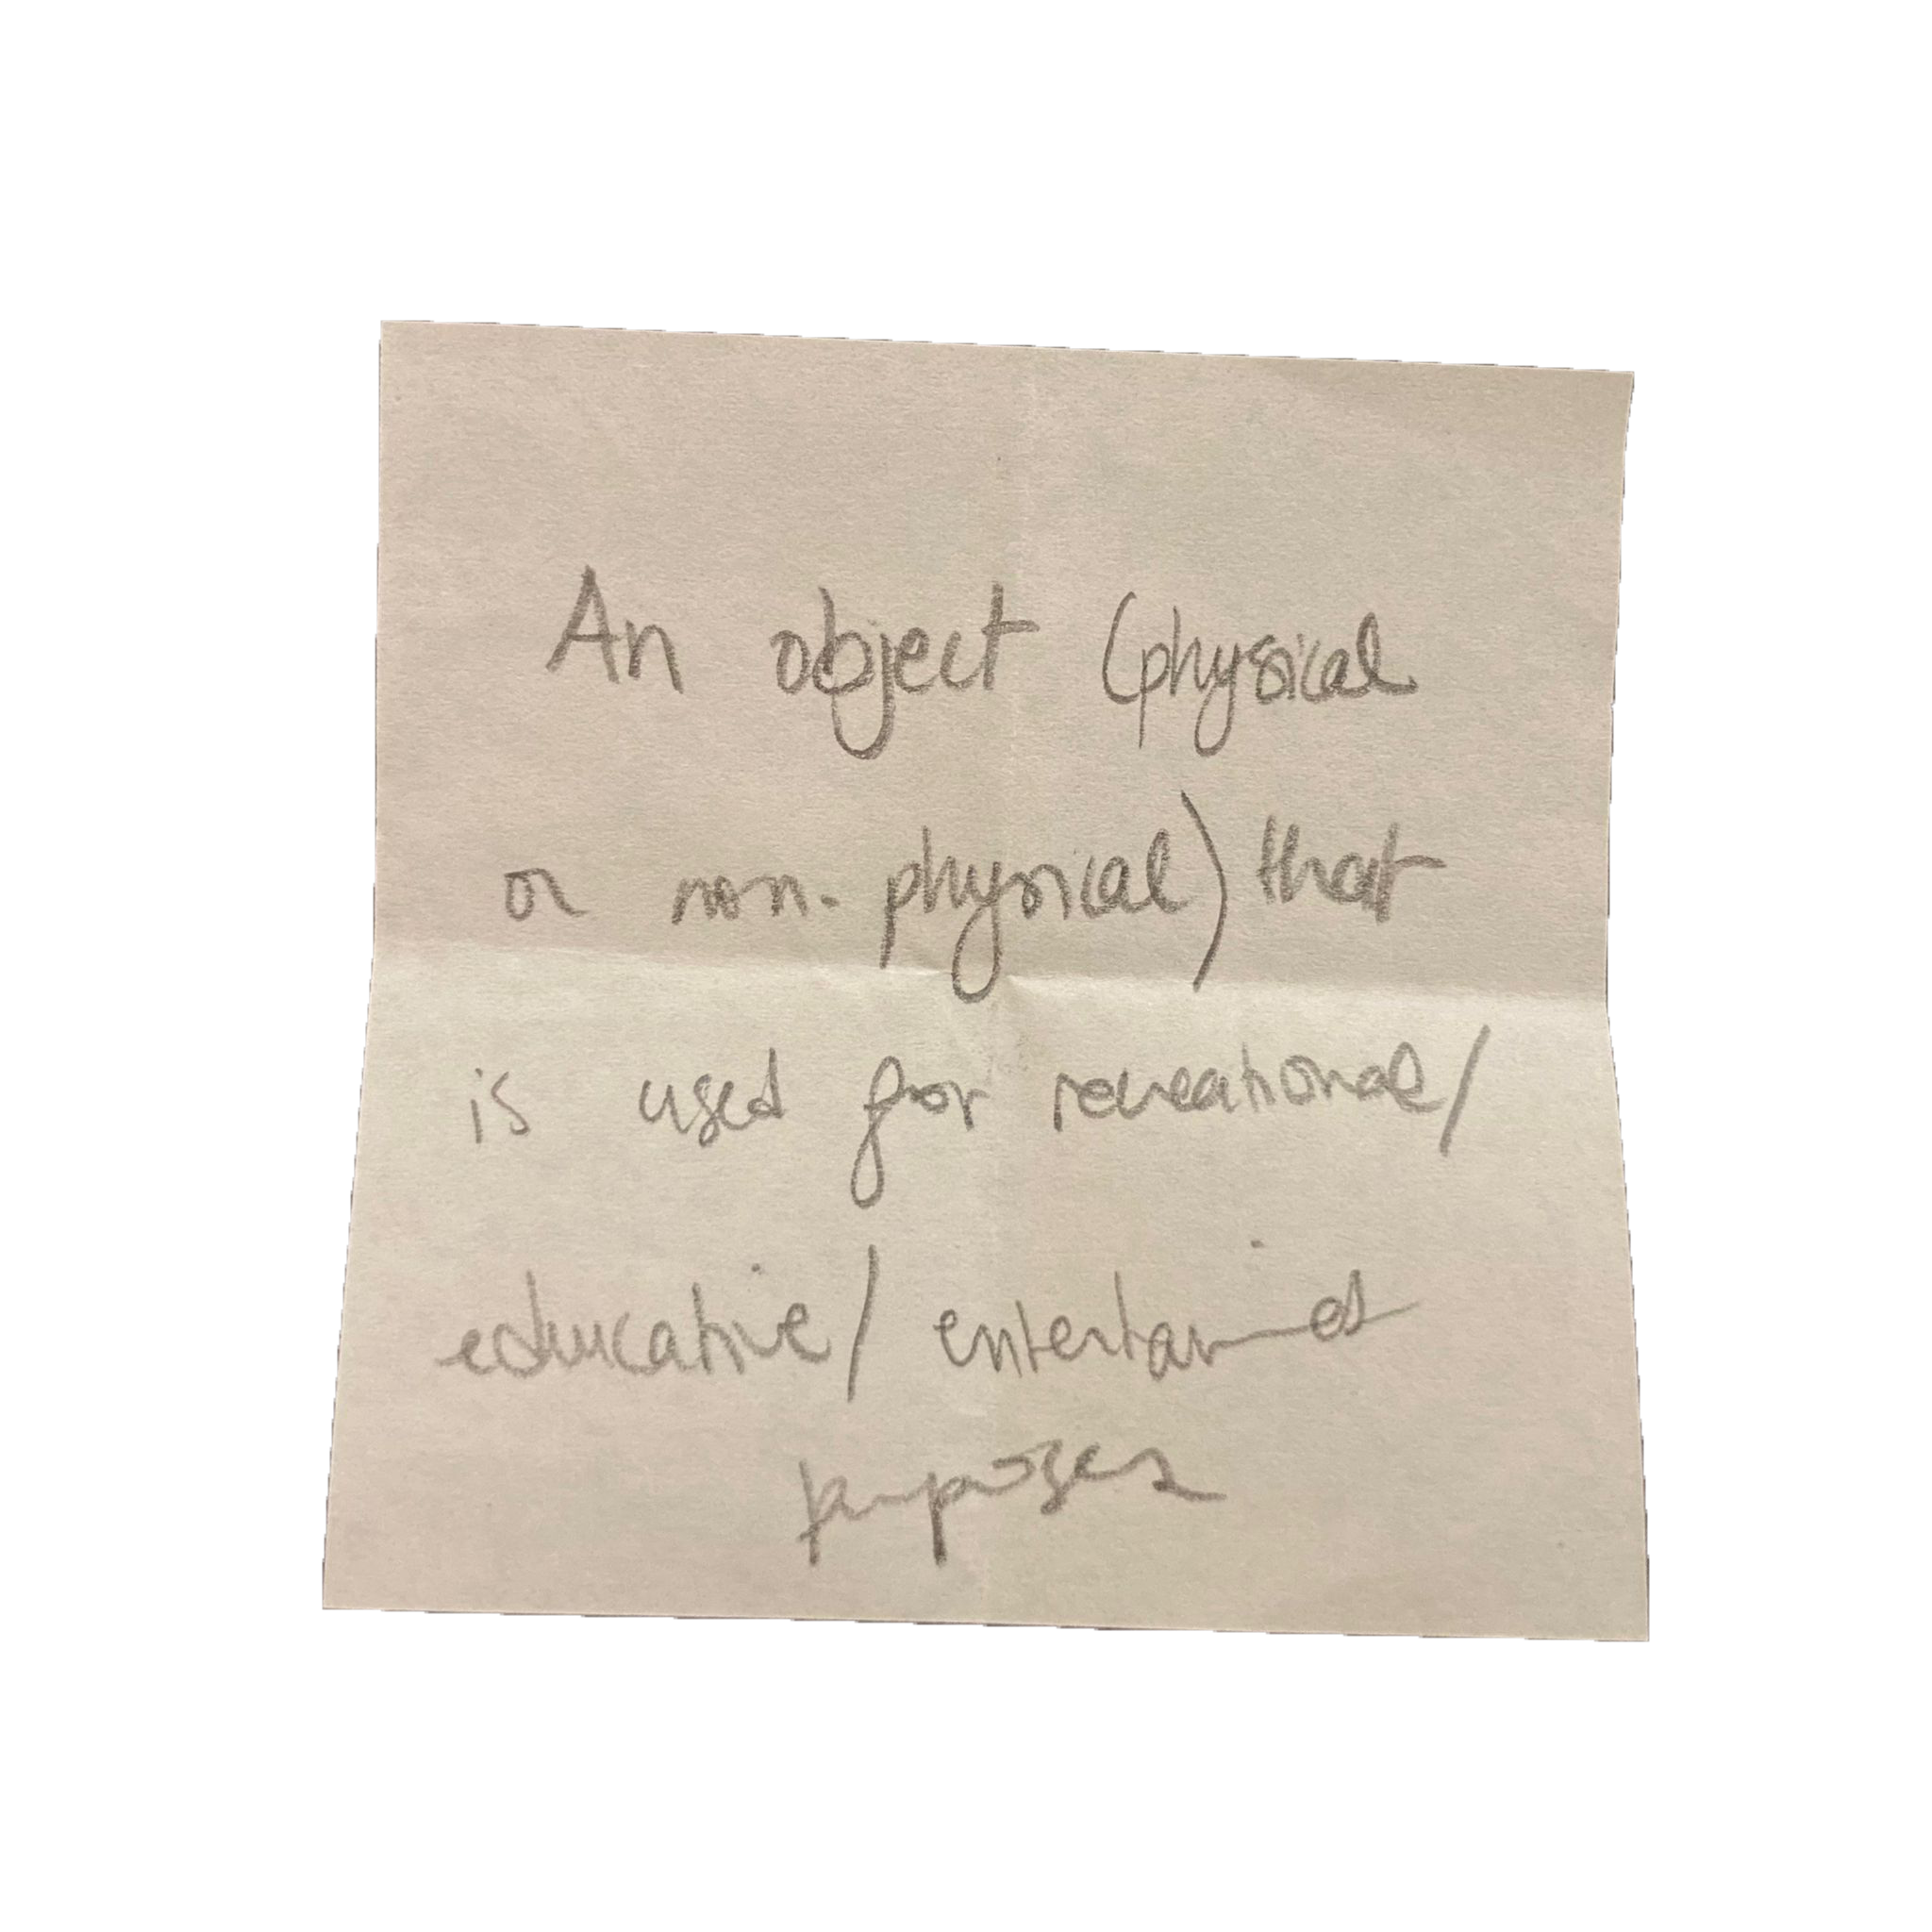 An object (physical
or non-physical) that
is used for recreational/
educative/
purposes